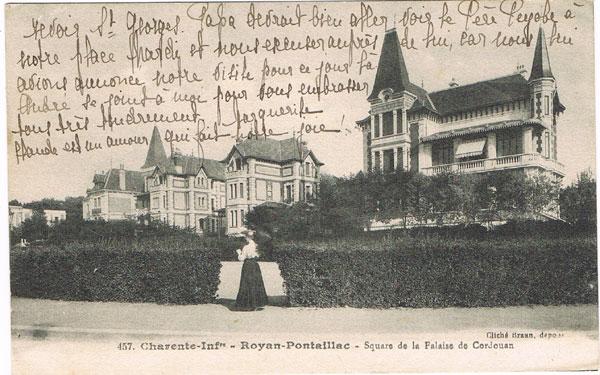 Revoir St Georges. Papa devrait bien aller voir le Père Peyobe à
notre place Mardi et nous excuser auprès de lui, car nous lui
avions annoncé notre visite pour ce jour là
André se joint à moi pour vous embrasser
tous très tendrement. Marguerite
Claude est un amour qui fait notre joie!
457. Charente-Infre - Royan-Pontaillac - Square de la Falaise de Cordouan
Cliché Braun, déposé